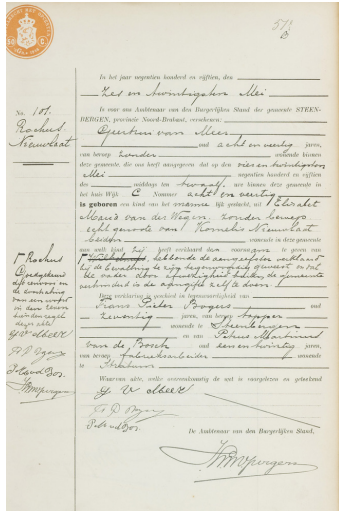 51?
No. 101.
Rochus
Nieuwlaat
In het jaar negentien honderd en vijftien, den
Zes en twintigsten Mei
is voor ons Ambtenaar van den Burgerlijken Stand der gemeente STEEN-
BERGEN, provincie Noord-Brabant, verschenen:
van Meer
oud acht en veertig jaren,
van beroep zonder wonende binnen
deze gemeente, die ons heeft aangegeven dat op den vier en twintigsten
Mei negentien honderd en vijftien
des middags ten twaalf ure binnen deze gemeente in
het huis Wijk C Nommer acht en veertig
is geboren een kind van het manne lijk geslacht, uit Elisabet
Maria van der Wegen, zonder beroep
echtgenoote van Kornelis Nieuwlaat
wonende in deze gemeente
aan welk kind zij heeft verklaard den voornaam te geven van
Rochus, hebbende de aangeefster verklaard
bij de bevalling te zijn tegenwoordig geweest en dat
de vader door afwezigheid buiten de gemeente
verhinderd is de aangifte zelf te doen.
Deze verklaring is geschied in tegenwoordigheid van
Frans Pieter Bogers oud
zeventig jaren, van beroep
wonende te Steenbergen
en van Petrus Martinus
van de Bosch oud een en twintig jaren,
van beroep fabriekarbeider wonende
te Steenbergen
Waarvan akte, welke overeenkomstig de wet is voorgelezen en geteekend
V Meer
De Ambtenaar van den Burgerlijken Stand,
Rochus
Goedgekeurd